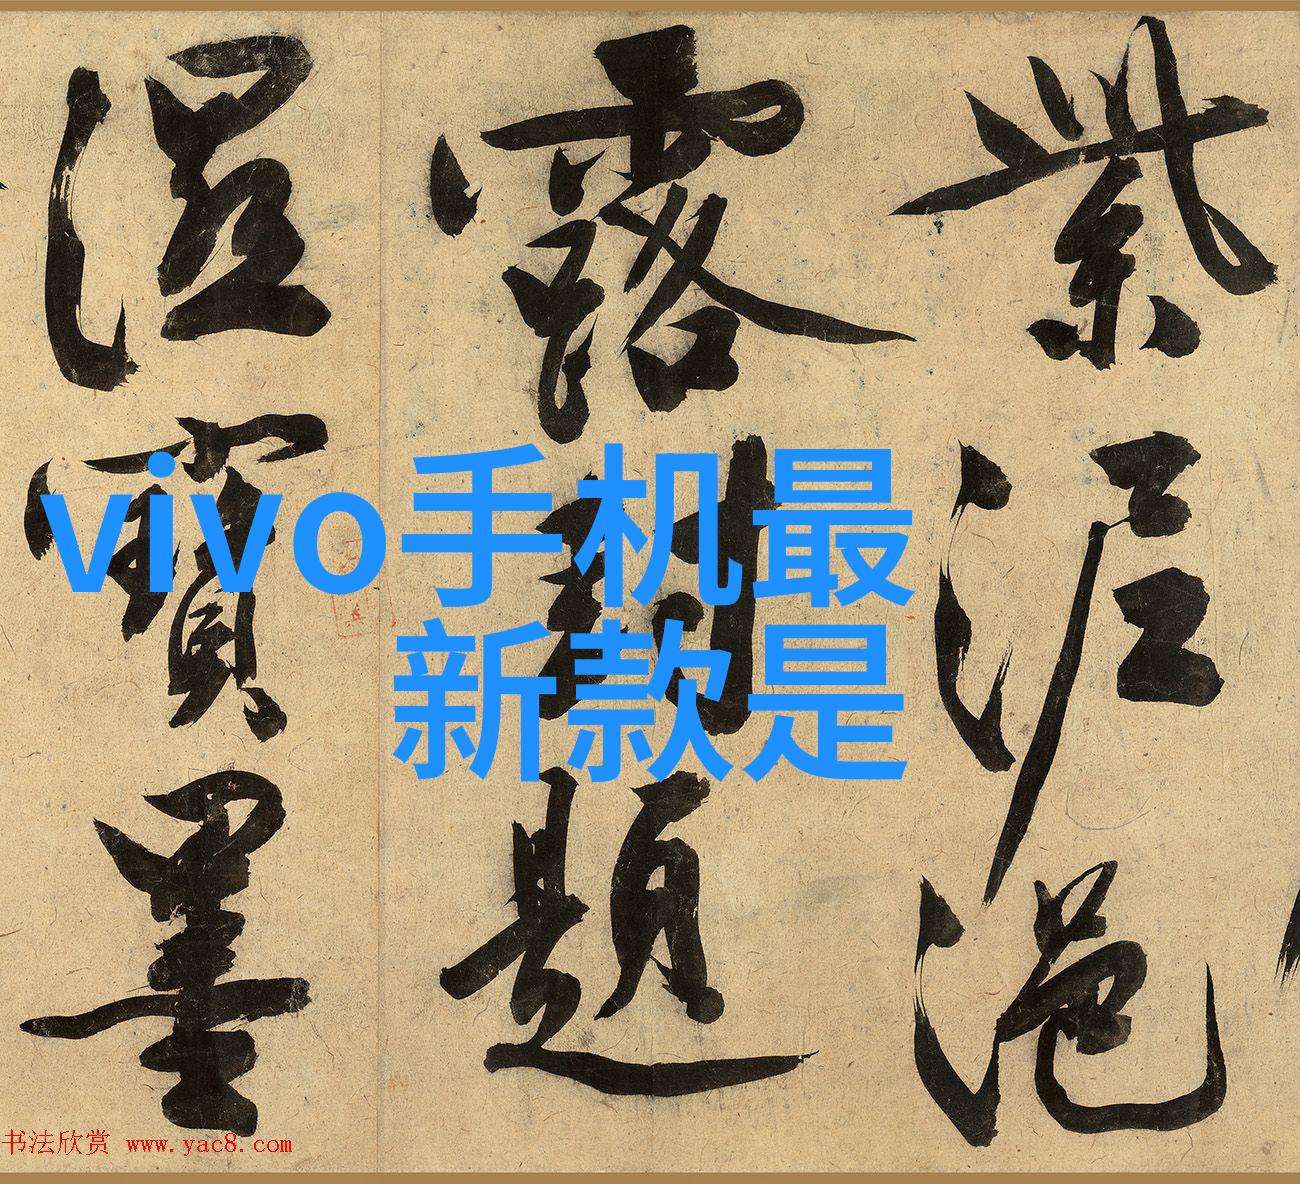 紫泥浥
露封題
湿寶墨
vivo手机最
新款是
书法欣赏 www.yac8.com